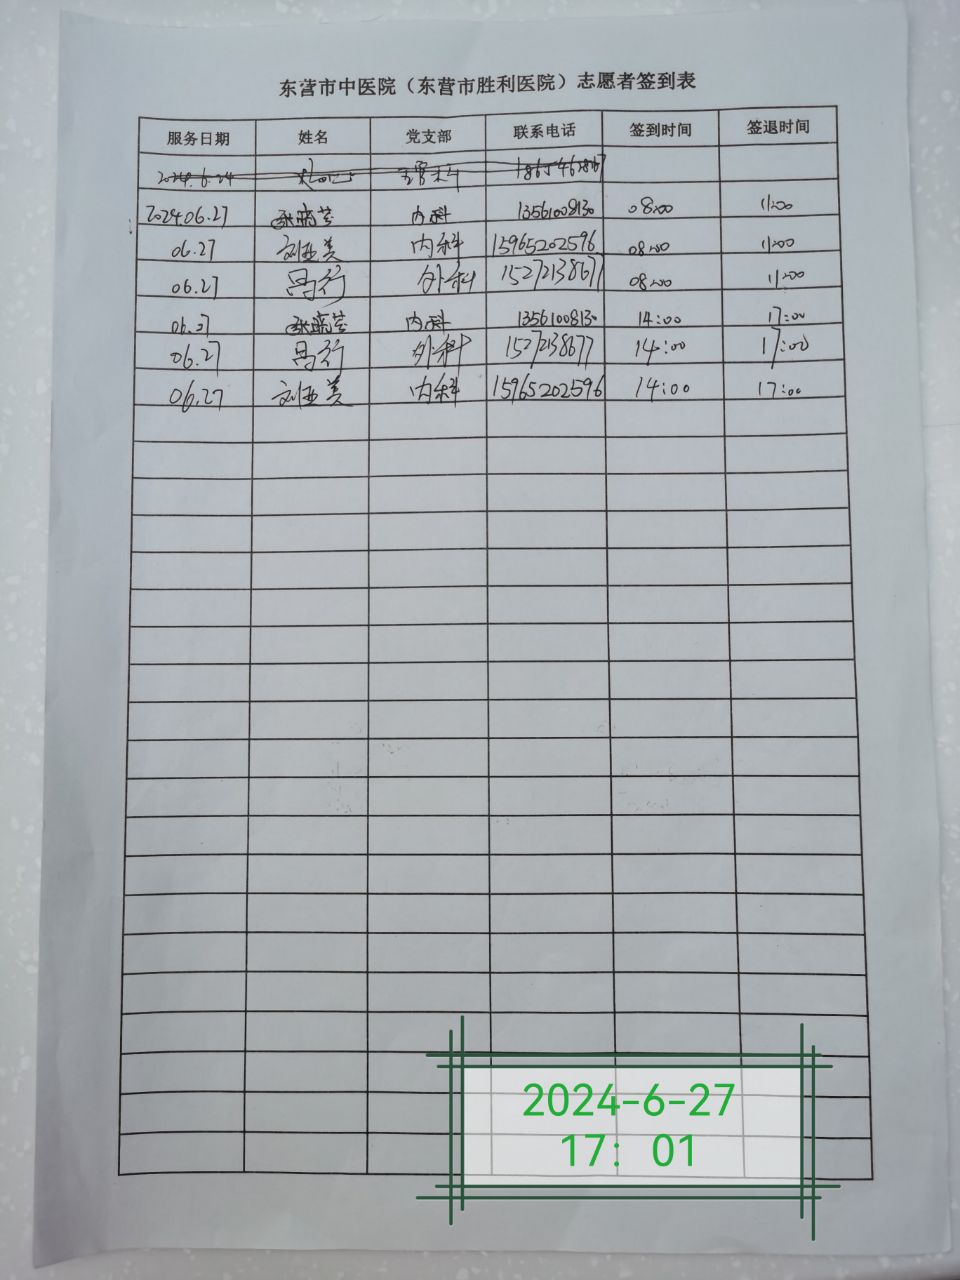 东营市中医院（东营市胜利医院）志愿者签到表
服务日期 姓名 党支部 联系电话 签到时间 签退时间
2024.6.24
2024.06.27 内科 13561008130 08:00 11:00
06.27 刘亚美 内科 15965202596 08:00 11:00
06.27 吕行 外科 15272138677 08:00 11:00
06.27 内科 13561008130 14:00 17:00
06.27 吕行 外科 15272138677 14:00 17:00
06.27 刘亚美 内科 15965202596 14:00 17:00
2024-6-27
17：01